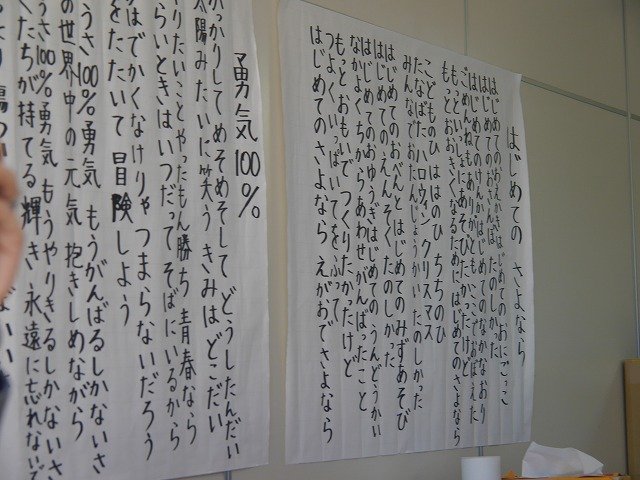 はじめての さよなら
はじめてのおえかき はじめてのおにごっこ
はじめてのおさんぽ たのしかった
はじめてのけんか はじめてのなかなおり
ごめんねも ありがとうも ここでおぼえた
もっといっしょにあそびたかったけど
もっとおおきくなるために はじめてのさよなら
こどものひ ははのひ ちちのひ
たなばた ハロウィン クリスマス
みんなでおたんじょうかい たのしかった
はじめてのおべんと はじめてのみずあそび
はじめてのえんそく たのしかった
はじめてのおゆうぎ はじめてのうんどうかい
なかよくちからあわせがんばったこと
もっとおもいで つくりたかったけど
つよくいっぱいてをふって
はじめてのさよなら えがおで さよなら
勇気100%
かっかりして めそめそして どうしたんだい
太陽みたいに笑う きみはどこだい
やりたいことやったもん勝ち 青春なら
つらいときはいつだってそばにいるから
はでかくなけりゃ つまらないだろう
をたたいて 冒険しよう
うさ100%勇気 もうがんばるしかないさ
の世界中の元気 抱きしめながら
うさ100%勇気 もうやりきるしかないさ
くたちが持てる輝き 永遠に忘れないで